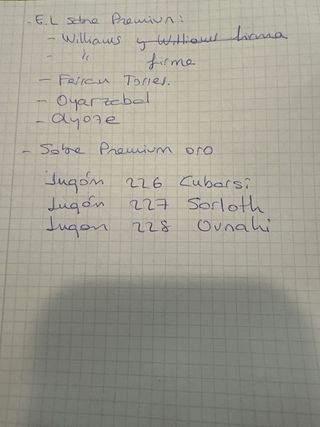 - E.L sobre Premium:
- Williams y Williams firma
- " firma
- Ferran Torres.
- Oyarzabal
- Ayoze
- Sobre Premium oro
Jugón 226 Cubarsi
Jugón 227 Sorloth
Jugon 228 Ounahi